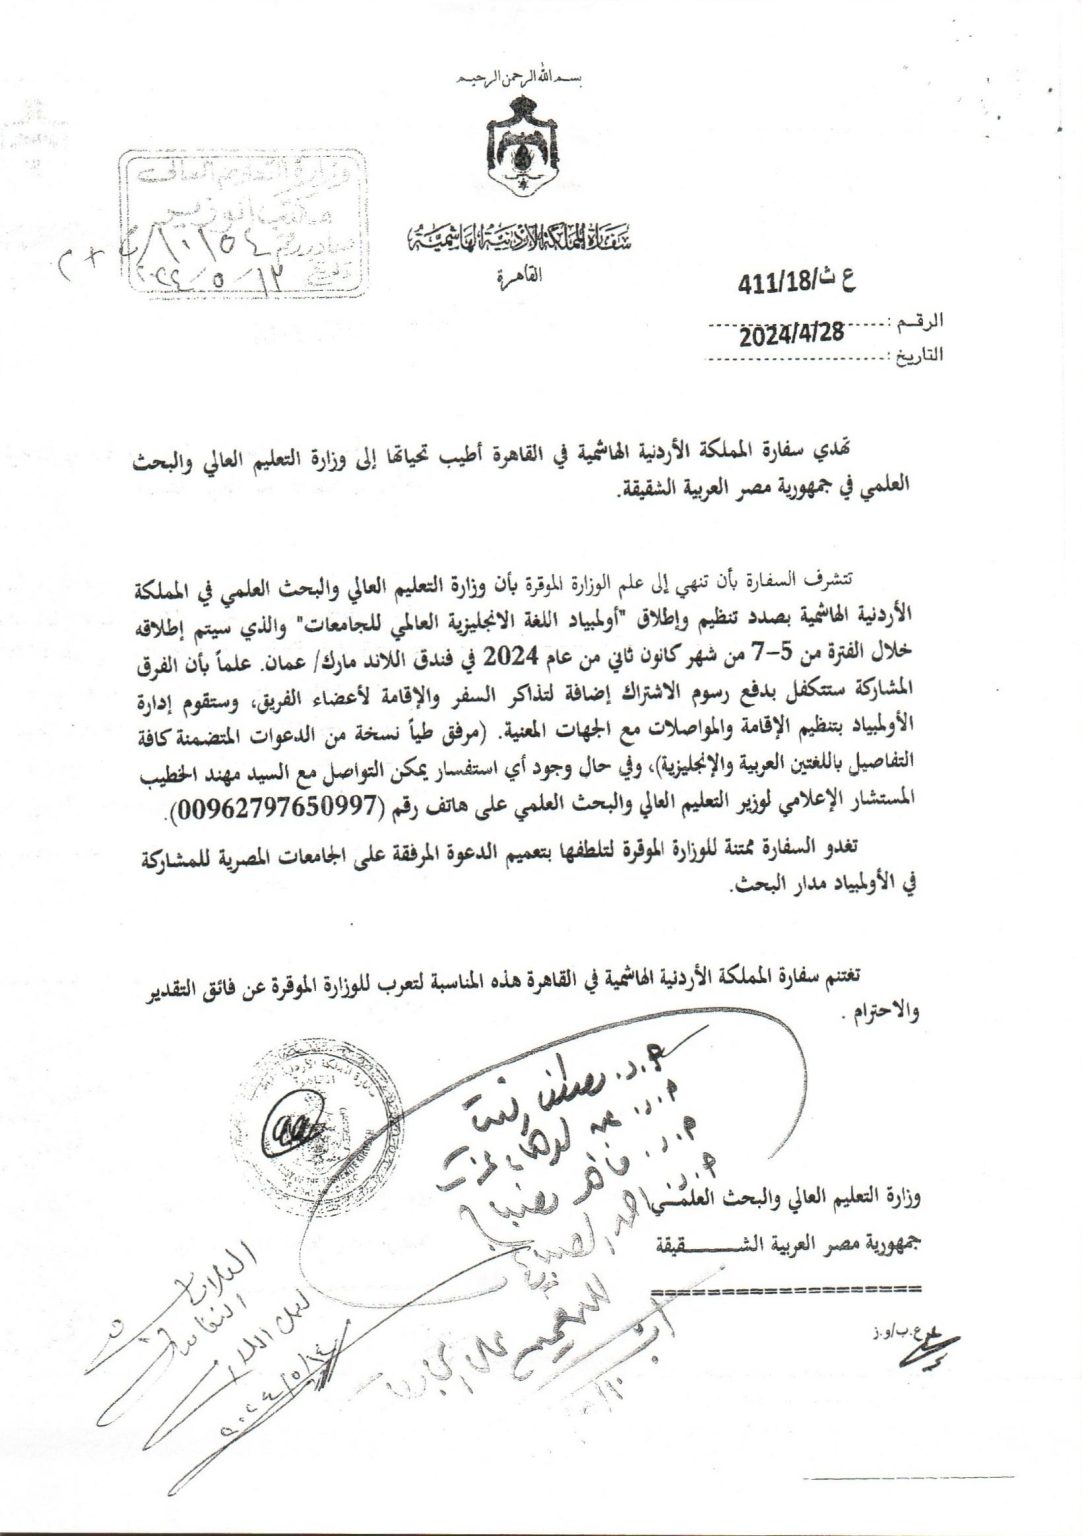 بسم الله الرحمن الرحيم
سفارة المملكة الأردنية الهاشمية
القاهرة
وزارة التعليم العالي
مكتب الوزير
صادر رقم ١٠١٥٤
٢٠٢٤/٥/١٢
ع ث/411/18
الرقـم :
2024/4/28
التاريخ :
تهدي سفارة المملكة الأردنية الهاشمية في القاهرة أطيب تحياتها إلى وزارة التعليم العالي والبحث
العلمي في جمهورية مصر العربية الشقيقة.
تتشرف السفارة بأن تنهي إلى علم الوزارة الموقرة بأن وزارة التعليم العالي والبحث العلمي في المملكة
الأردنية الهاشمية بصدد تنظيم وإطلاق "أولمبياد اللغة الانجليزية العالمي للجامعات" والذي سيتم إطلاقه
خلال الفترة من 5–7 من شهر كانون ثاني من عام 2024 في فندق اللاند مارك/ عمان. علماً بأن الفرق
المشاركة ستتكفل بدفع رسوم الاشتراك إضافة لتذاكر السفر والإقامة لأعضاء الفريق، وستقوم إدارة
الأولمبياد بتنظيم الإقامة والمواصلات مع الجهات المعنية. (مرفق طياً نسخة من الدعوات المتضمنة كافة
التفاصيل باللغتين العربية والإنجليزية)، وفي حال وجود أي استفسار يمكن التواصل مع السيد مهند الخطيب
المستشار الإعلامي لوزير التعليم العالي والبحث العلمي على هاتف رقم (00962797650997).
تغدو السفارة ممتنة للوزارة الموقرة لتلطفها بتعميم الدعوة المرفقة على الجامعات المصرية للمشاركة
في الأولمبياد مدار البحث.
تغتنم سفارة المملكة الأردنية الهاشمية في القاهرة هذه المناسبة لتعرب للوزارة الموقرة عن فائق التقدير
والاحترام .
وزارة التعليم العالي والبحث العلمـي
جمهورية مصر العربية الشـــــقيقة
====================
ع.ب/و.ز
٢٠٢٤/٥/١٤